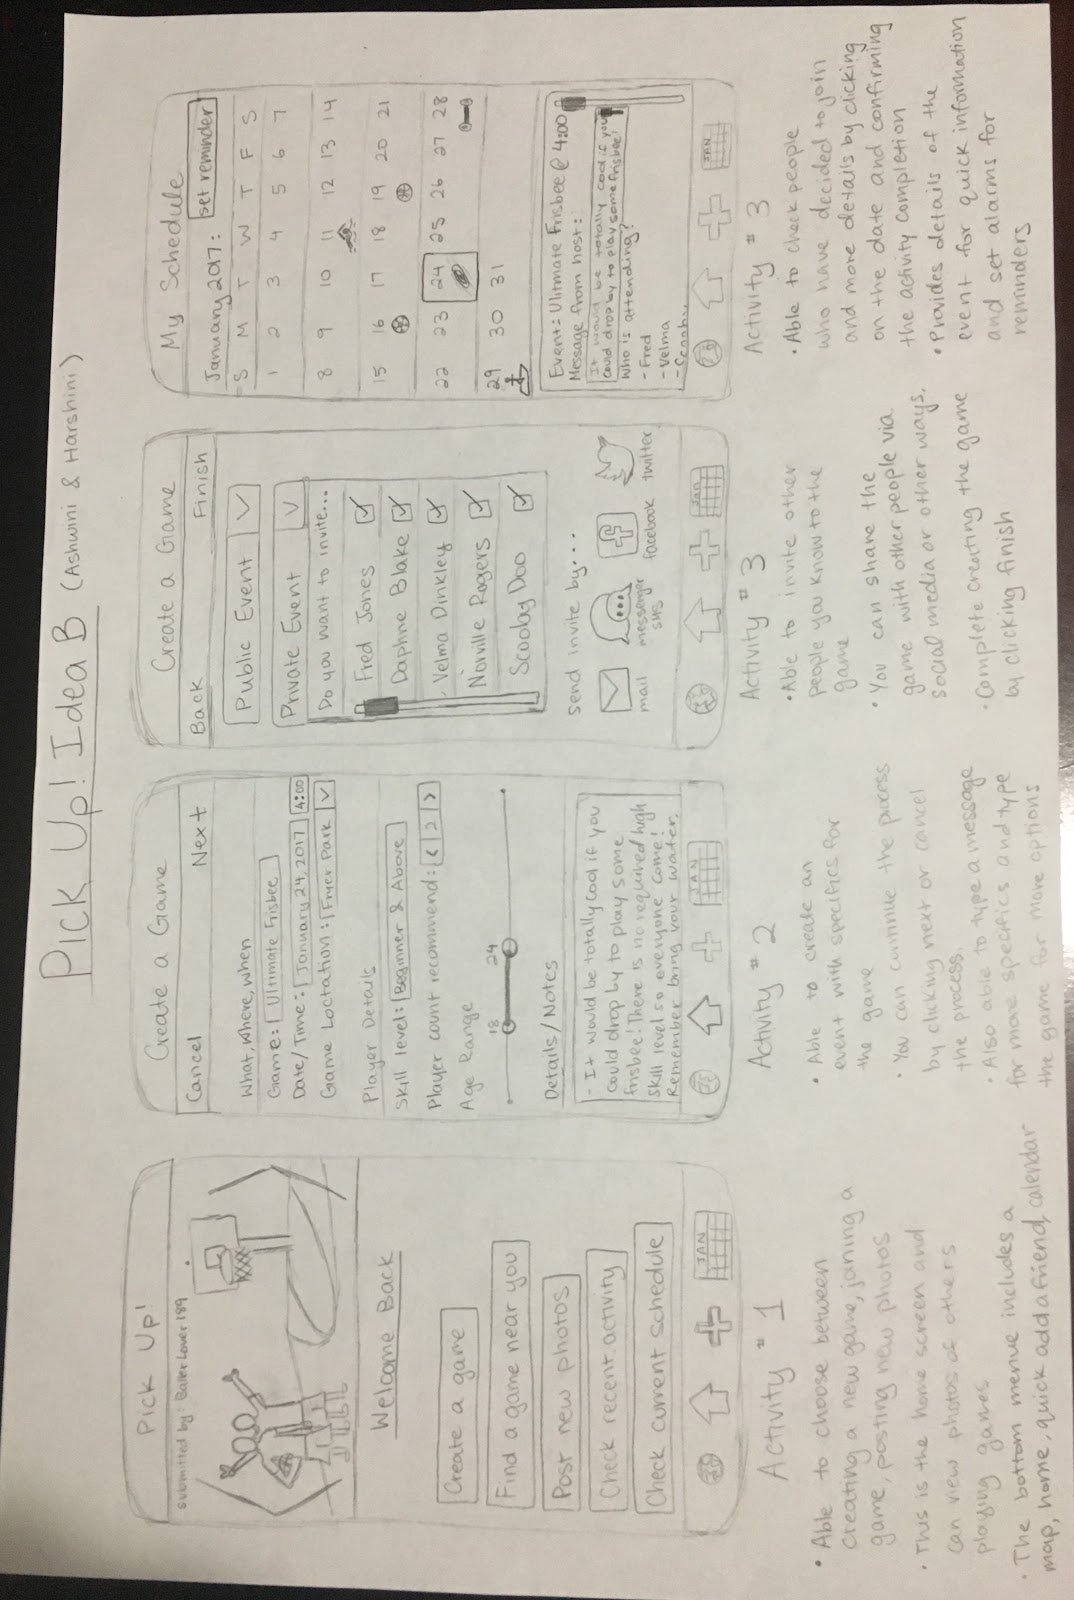 Pick Up! Idea B (Ashwini & Harshini)
Pick Up!
submitted by: Baller Lover 189
Welcome Back
Create a game
Find a game near you
Post new photos
Check recent activity
Check current schedule
JAN
Activity #1
• Able to choose between
creating a new game, joining a
game, posting new photos
• This is the home screen and
can view photos of others
playing games
• The bottom menue includes a
map, home, quick add a friend, calendar
Create a Game
Cancel Next
What, where, when
Game: Ultimate Frisbee
Date/Time: January 24, 2017 4:00
Game Loctation: Fryer Park
Player Details
Skill level: Beginner & Above
Player count recommend: < 2 >
Age Range
18 24
Details/Notes
- It would be totally cool if you
could drop by to play some
frisbee! There is no required high
skill level so everyone come!
Remember bring your water,
JAN
Activity #2
• Able to create an
event with specifics for
the game
• You can continue the process
by clicking next or cancel
the process.
• Also able to type a message
for more specifics and type
the game for more options
Create a Game
Back Finish
Public Event
Private Event
Do you want to invite...
Fred Jones
Daphne Blake
Velma Dinkley
Norville Rogers
Scooby Doo
Send invite by...
mail
messenger
SMS
facebook
twitter
Jan
Activity #3
• Able to invite other
people you know to the
game
• You can share the
game with other people via
social media or other ways.
• Complete creating the game
by clicking finish
My Schedule
January 2017: set reminder
S M T W T F S
1 2 3 4 5 6 7
8 9 10 11 12 13 14
15 16 17 18 19 20 21
22 23 24 25 26 27 28
29 30 31
Event: Ulitmate Frisbee @ 4:00
Message from host:
It would be totally cool if you
could drop by to play some frisbee!
Who is attending?
- Fred
- Velma
- Scooby
JAN
Activity #3
• Able to check people
who have decided to join
and more details by clicking
on the date and confirming
the activity completion
• Provides details of the
event for quick information
and set alarms for
reminders